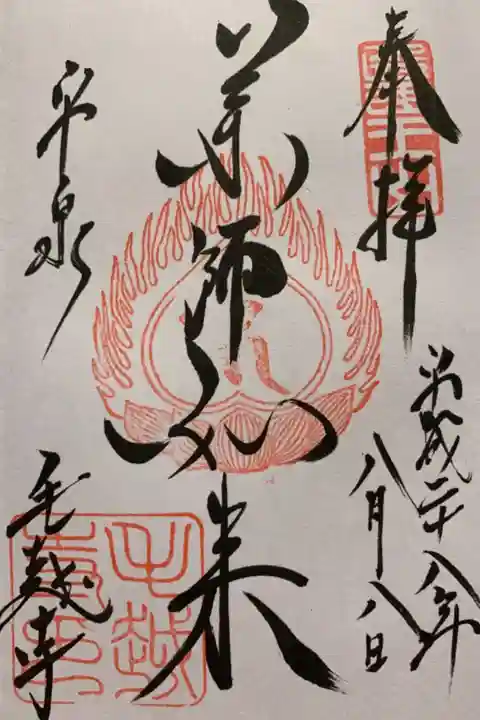 奉拝
平成二十八年
八月八日
薬師如来
平泉
毛越寺